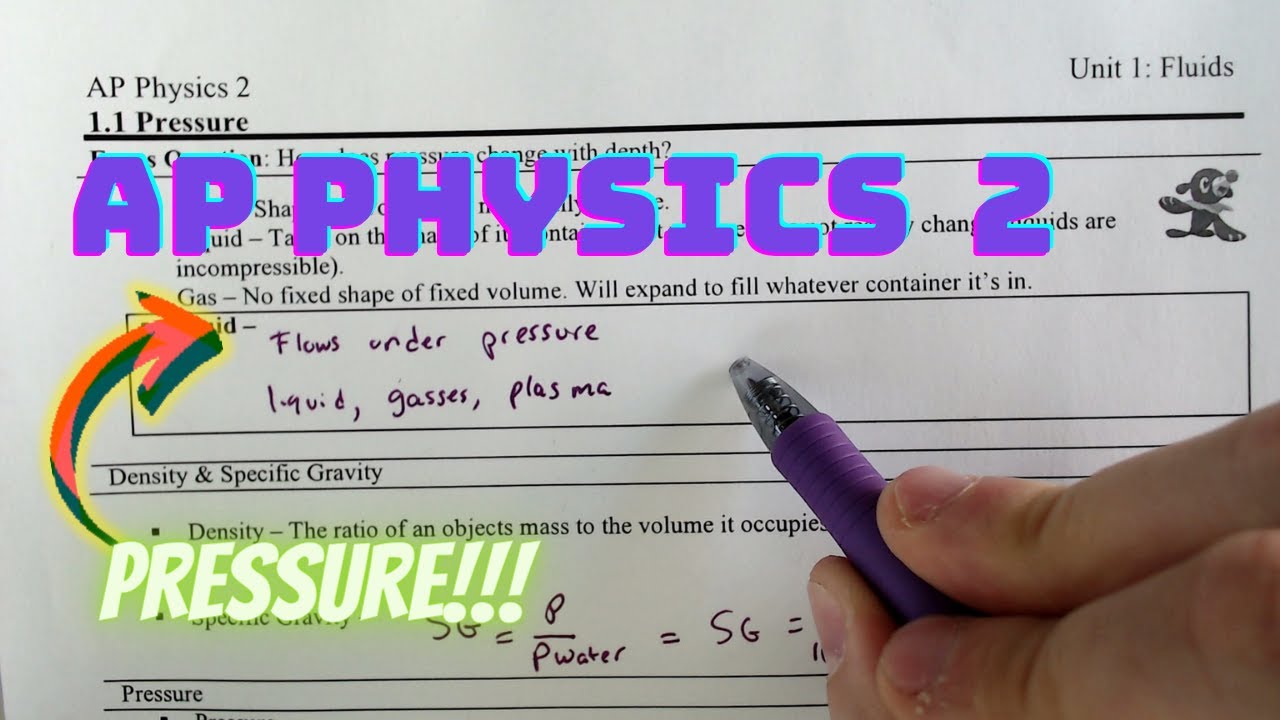 AP Physics 2
Unit 1: Fluids
1.1 Pressure
Question: How does pressure change with depth?
AP PHYSICS 2
incompressible).
Gas – No fixed shape of fixed volume. Will expand to fill whatever container it's in.
Flows under pressure
liquid, gasses, plasma
Density & Specific Gravity
▪ Density – The ratio of an objects mass to the volume it occupies
PRESSURE!!!
▪ Specific Gravity – SG = ρ / ρwater = SG =
Pressure
▪ Pressure